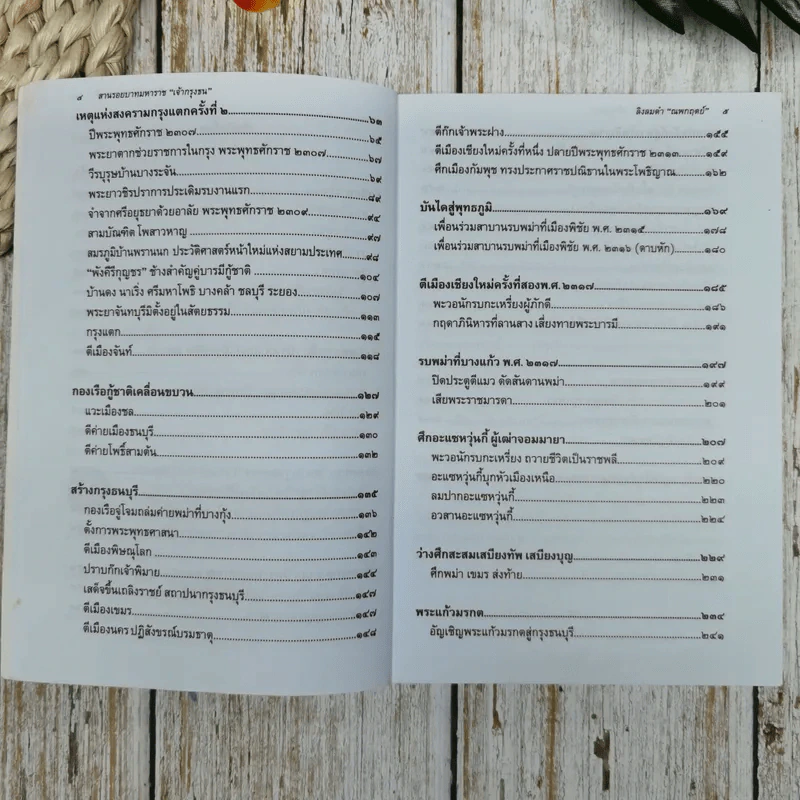 ๔ สานรอยบาทมหาราช "เจ้ากรุงธน"
เหตุแห่งสงครามกรุงแตกครั้งที่ ๒ ๖๑
ปีพระพุทธศักราช ๒๓๐๗ ๖๕
พระยาตากช่วยราชการในกรุง พระพุทธศักราช ๒๓๐๗ ๖๗
วีรบุรุษบ้านบางระจัน ๖๙
พระยาวชิรปราการประเดิมรบงานแรก ๘๙
จำจากศรีอยุธยาด้วยอาลัย พระพุทธศักราช ๒๓๐๙ ๙๔
สามบัณฑิต โพสาวหาญ ๙๗
สมรภูมิบ้านพรานนก ประวัติศาสตร์หน้าใหม่แห่งสยามประเทศ ๙๘
"พังคีรีกุญชร" ช้างสำคัญคู่บารมีกู้ชาติ ๑๐๔
บ้านดง นาเริ่ง ศรีมหาโพธิ บางคล้า ชลบุรี ระยอง ๑๐๗
พระยาจันทบุรีมิตั้งอยู่ในสัตยธรรม ๑๑๓
กรุงแตก ๑๑๕
ตีเมืองจันท์ ๑๑๘
กองเรือกู้ชาติเคลื่อนขบวน ๑๒๗
แวะเมืองชล ๑๒๙
ตีค่ายเมืองธนบุรี ๑๓๐
ตีค่ายโพธิ์สามต้น ๑๓๒
สร้างกรุงธนบุรี ๑๓๕
กองเรือจู่โจมถล่มค่ายพม่าที่บางกุ้ง ๑๓๖
ตั้งการพระพุทธศาสนา ๑๔๒
ตีเมืองพิษณุโลก ๑๔๓
ปราบก๊กเจ้าพิมาย ๑๔๔
เสด็จขึ้นเถลิงราชย์ สถาปนากรุงธนบุรี ๑๔๗
ตีเมืองเขมร ๑๔๗
ตีเมืองนคร ปฏิสังขรณ์บรมธาตุ ๑๔๘
ลิงลมดำ "ณพกฤตย์" ๕
ตีก๊กเจ้าพระฝาง ๑๕๕
ตีเมืองเชียงใหม่ครั้งที่หนึ่ง ปลายปีพระพุทธศักราช ๒๓๑๓ ๑๕๙
ศึกเมืองกัมพุช ทรงประกาศราชปณิธานในพระโพธิญาณ ๑๖๒
บันไดสู่พุทธภูมิ ๑๖๙
เพื่อนร่วมสาบานรบพม่าที่เมืองพิชัย พ.ศ. ๒๓๑๕ ๑๗๘
เพื่อนร่วมสาบานรบพม่าที่เมืองพิชัย พ.ศ. ๒๓๑๖ (ดาบหัก) ๑๘๐
ตีเมืองเชียงใหม่ครั้งที่สองพ.ศ.๒๓๑๗ ๑๘๕
พะวอนักรบกะเหรี่ยงผู้ภักดี ๑๘๖
กฤดาภินิหารที่ลานสาง เสี่ยงทายพระบารมี ๑๙๑
รบพม่าที่บางแก้ว พ.ศ. ๒๓๑๗ ๑๙๗
ปิดประตูตีแมว ดัดสันดานพม่า ๑๙๙
เสียพระราชมารดา ๒๐๑
ศึกอะแซหวุ่นกี้ ผู้เฒ่าจอมมายา ๒๐๗
พะวอนักรบกะเหรี่ยง ถวายชีวิตเป็นราชพลี ๒๐๙
อะแซหวุ่นกี้บุกหัวเมืองเหนือ ๒๒๐
ลมปากอะแซหวุ่นกี้ ๒๒๓
อวสานอะแซหวุ่นกี้ ๒๒๔
ว่างศึกสะสมเสบียงทัพ เสบียงบุญ ๒๒๙
ศึกพม่า เขมร ส่งท้าย ๒๓๑
พระแก้วมรกต ๒๓๔
อัญเชิญพระแก้วมรกตสู่กรุงธนบุรี ๒๔๑